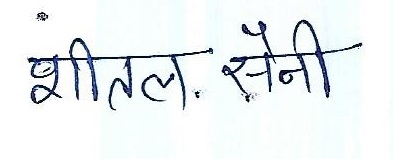 शीतल. सैनी